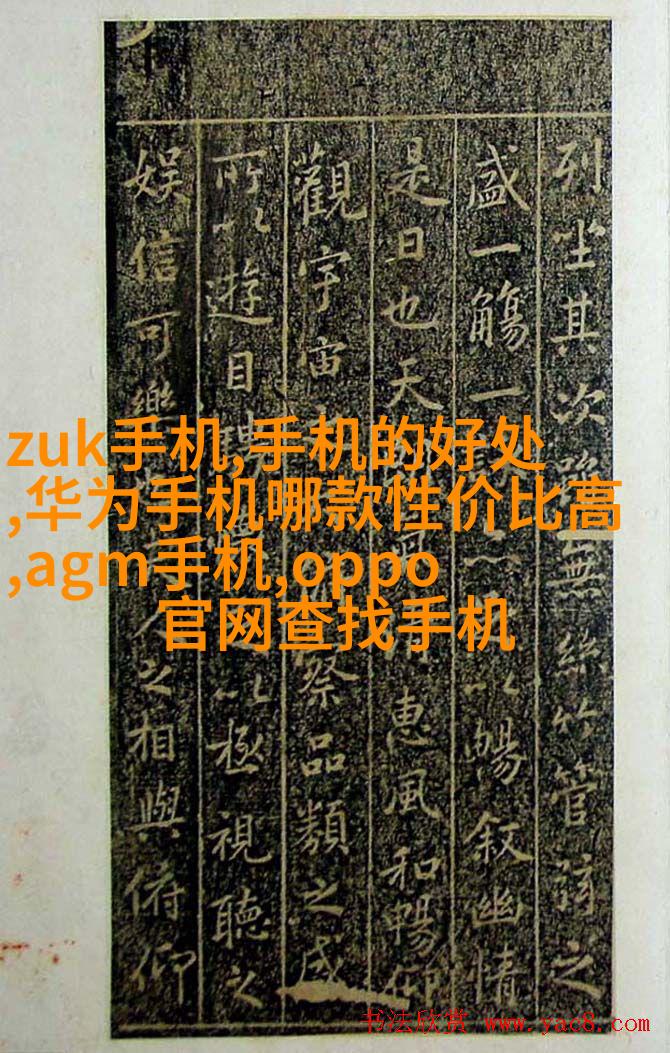 列坐其次雖無絲竹管弦之
盛一觴一以暢叙幽情
是日也天惠風和暢仰
觀宇宙察品類之盛
所以遊目騁以極視聽之
娱信可樂人之相與俯仰
zuk手机,手机的好处
,华为手机哪款性价比高
,agm手机,oppo
官网查找手机
书法欣赏 www.yac8.com